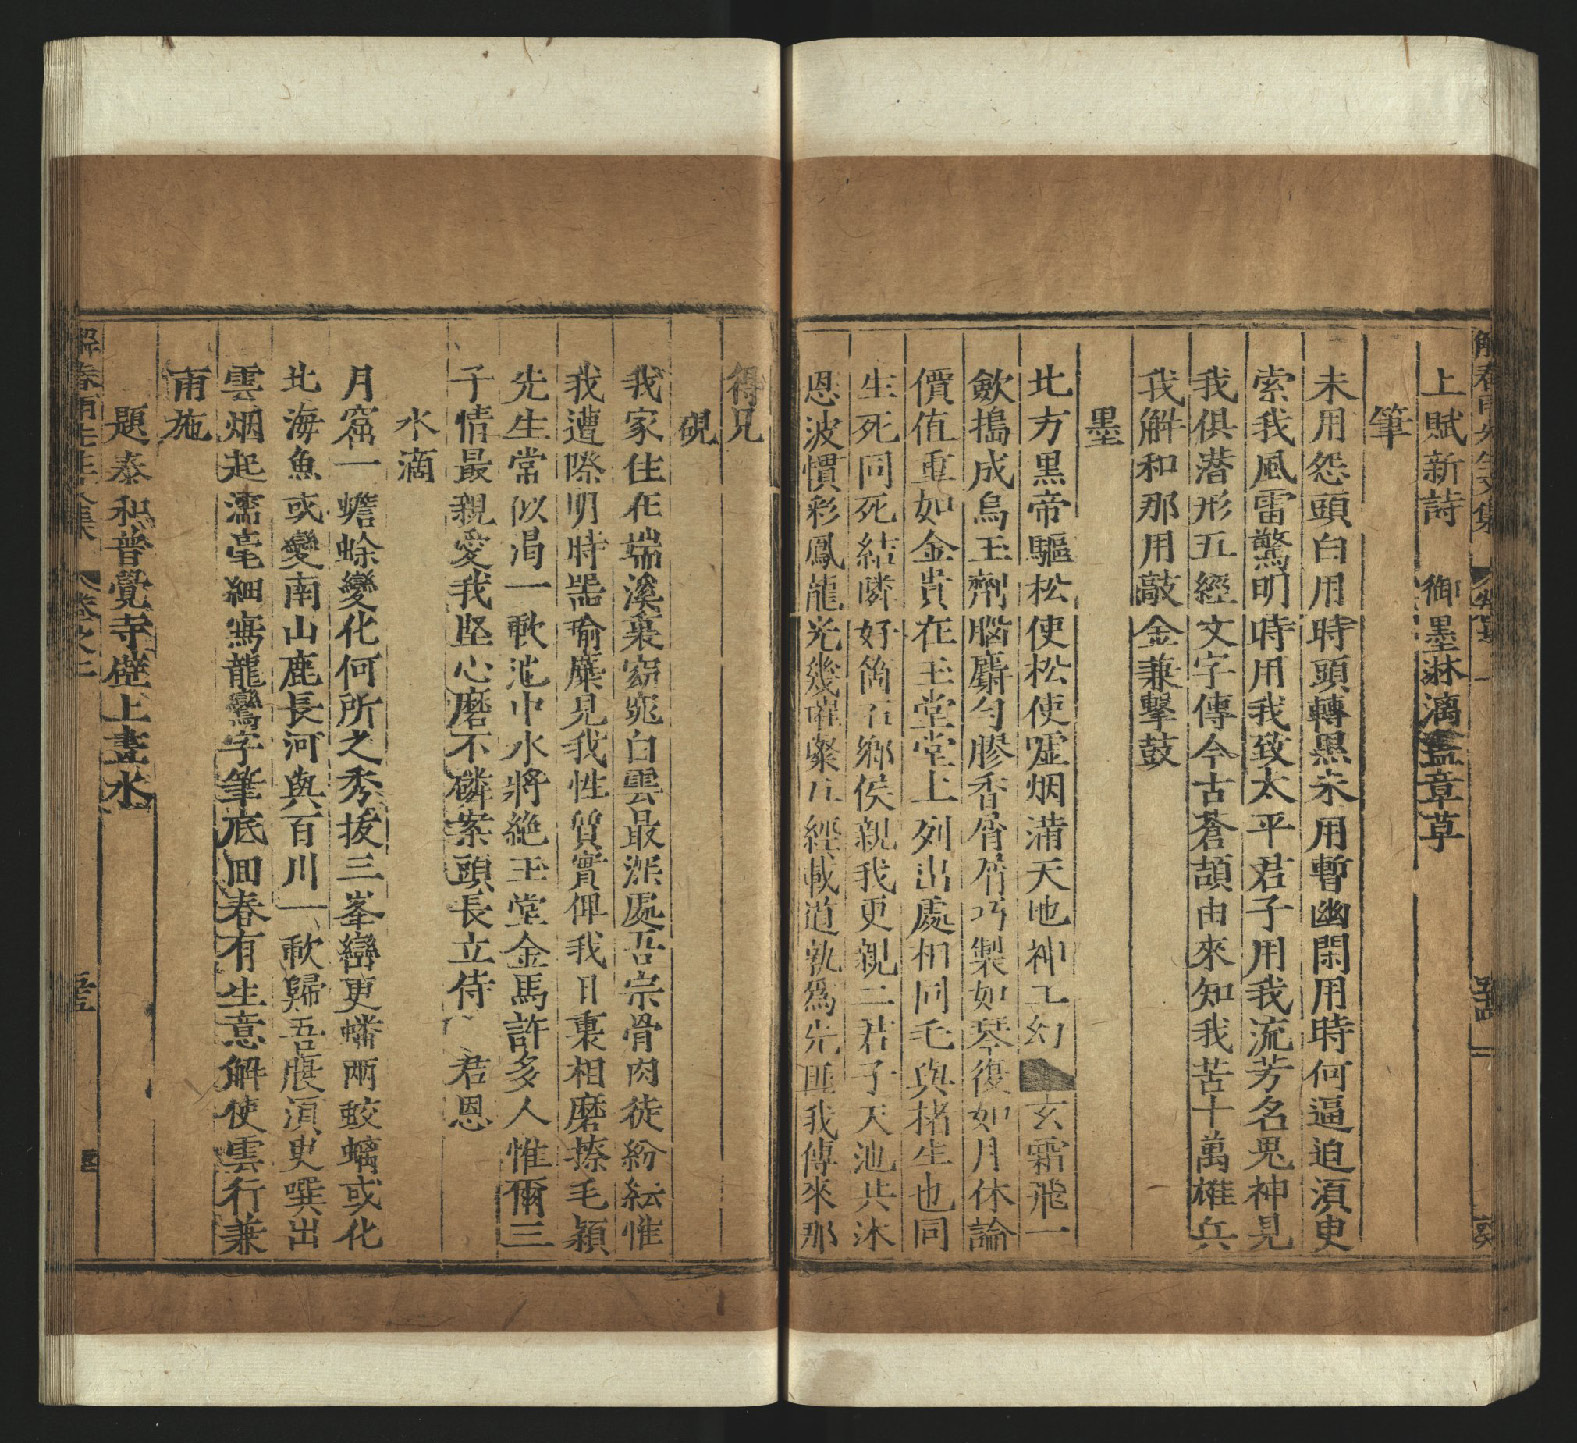 上賦新詩　御墨淋漓藍章草
筆
未用怨頭白用時頭轉黒未用暫幽閑用時何逼迫湏臾
索我風雷驚明時用我致太平君子用我流芳名鬼神見
我俱潜形五經文字傳今古蒼頡由來知我苦十萬雄兵
我解和那用敲金兼擊鼓
墨
北方黒帝驅松使松使窑烟蒲天地神工幻玄霜飛一
歙搗成烏玉劑腦麝勻膠香屑屑巧製如琴復如月休論
價值重如金貴在玉堂堂上列出處相同毛與楮生也同
生死同死結隣好箇石鄉侯親我更親二君子天池共沐
恩波慣彩鳳龍光幾五經載道孰爲先匪我傳來那
得見
硯
我家住在端溪裏窈窕白雲最深處吾宗骨肉徒紛紜惟
我遭際明時噐瑜糜見我性質實俾我日裏相磨揉毛潁
先生常似渴一歃池中水將絶玉堂金馬許多人惟爾三
子情最親愛我堅心磨不磷案頭長立侍　君恩
水滴
月窟一蟾蜍變化何所之秀拔三峯巒更蟠兩蛟螭或化
北海魚或變南山鹿長河與百川一歃歸吾腹湏臾噀出
雲烟起濡毫細寫龍鸞字筆底回春有生意解使雲行兼
雨施
題泰和普覺寺壁上畫水